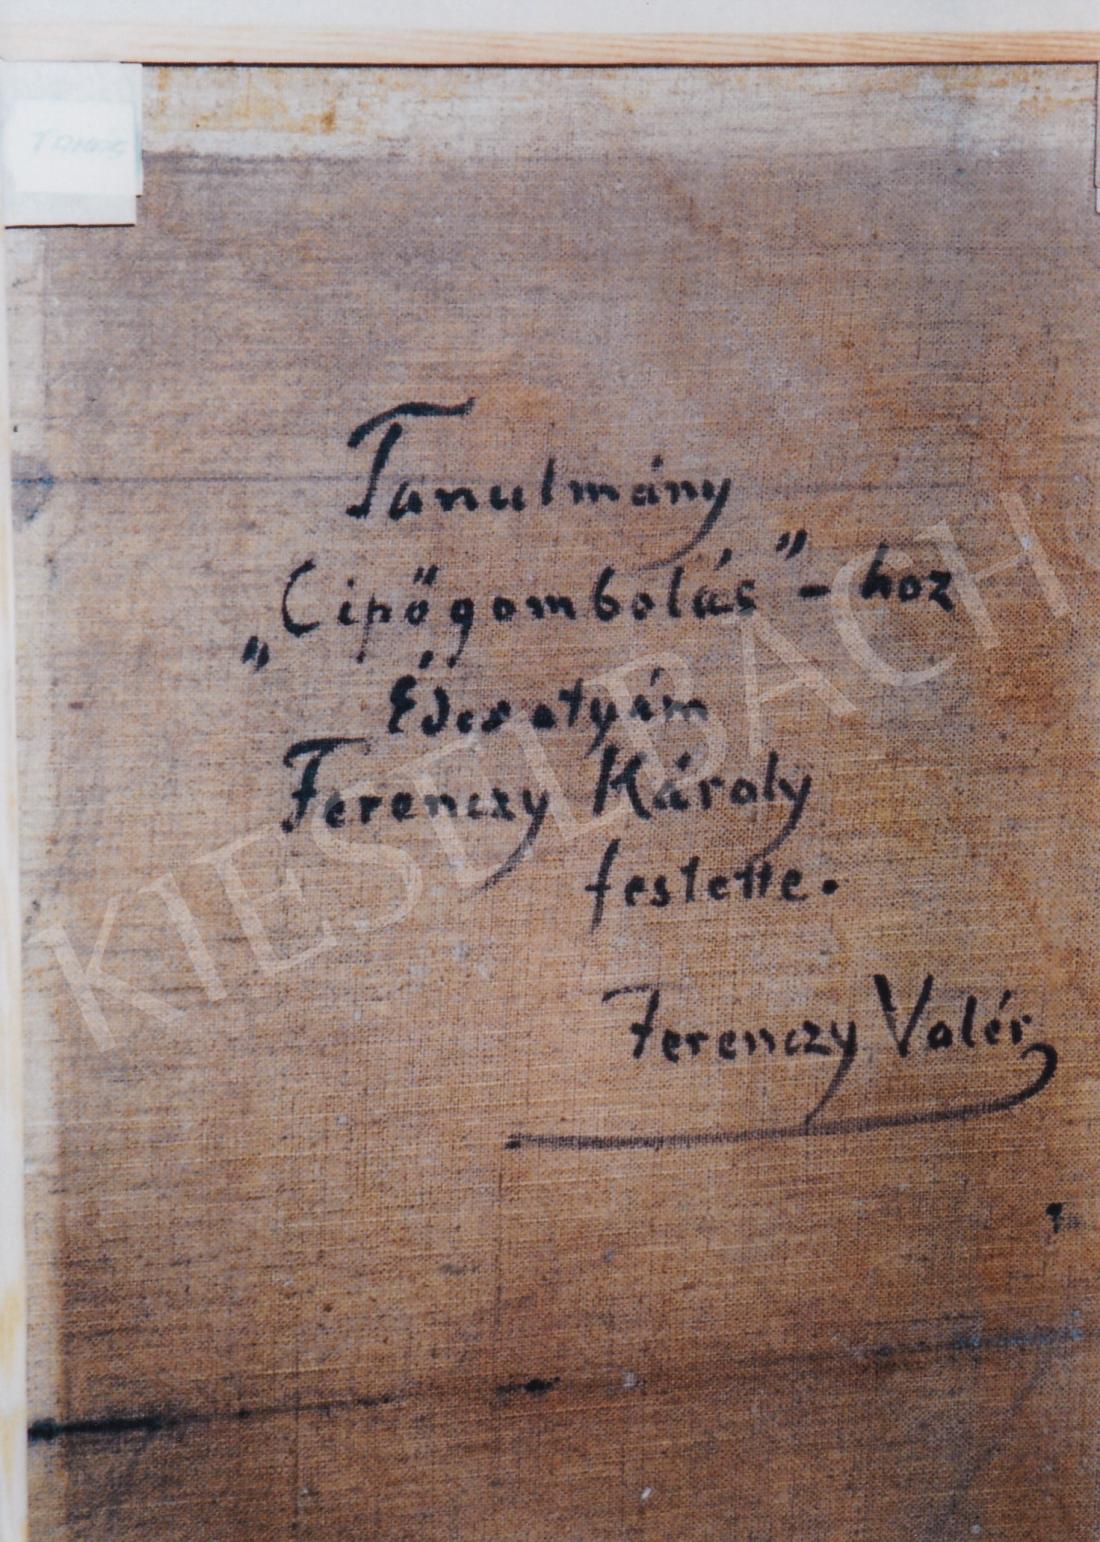 Tanulmány
„Cipőgombolás"-hoz
Édesatyám
Ferenczy Károly
festette.
Ferenczy Valér
KIESELBACH